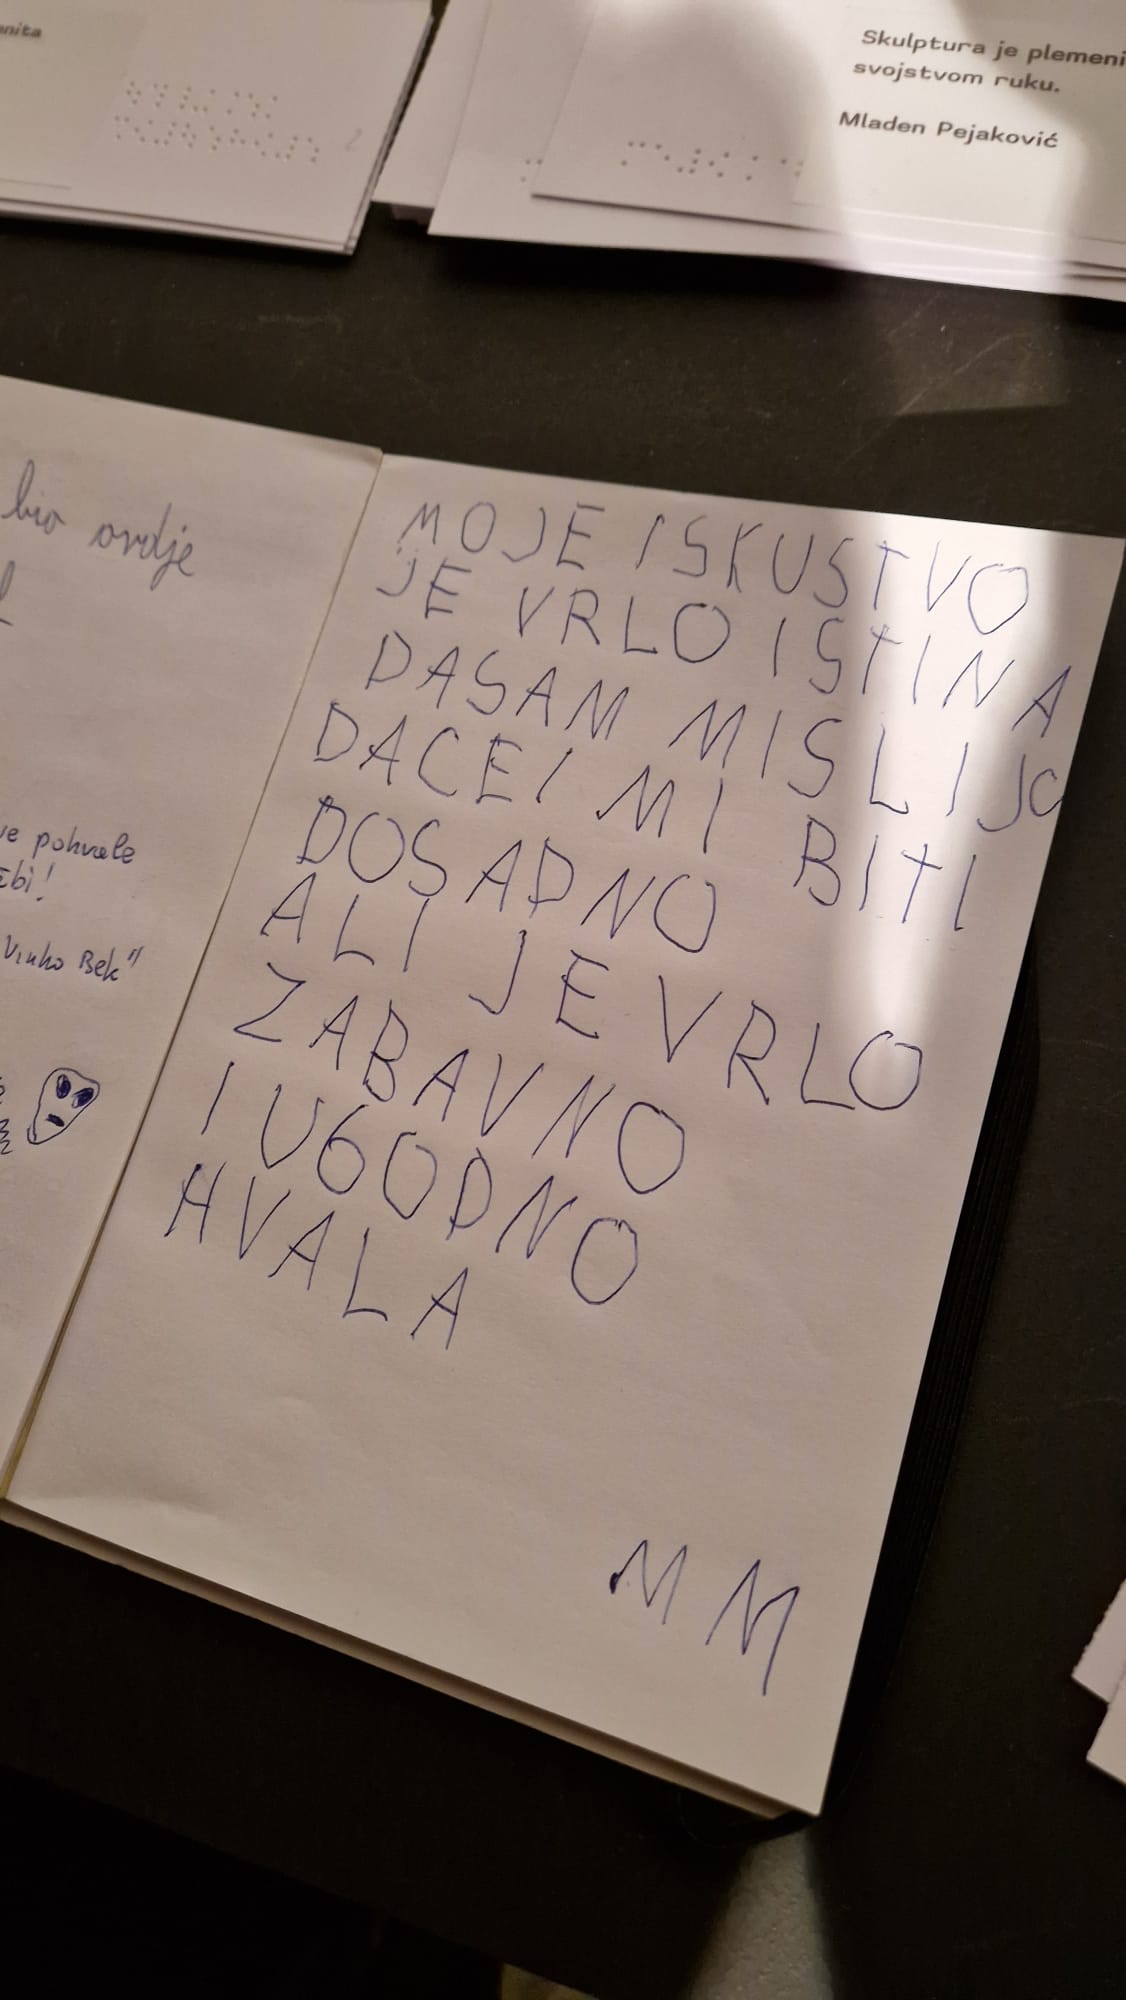 Skulptura je plemeni
svojstvom ruku.
Mladen Pejaković
bio ovdje
pohvale
Vinko Bek"
MOJE ISKUSTVO
JE VRLO ISTINA
DASAM MISLIJO
DACEI MI BITI
DOSADNO
ALI JE VRLO
ZABAVNO
I UGODNO
HVALA
MM